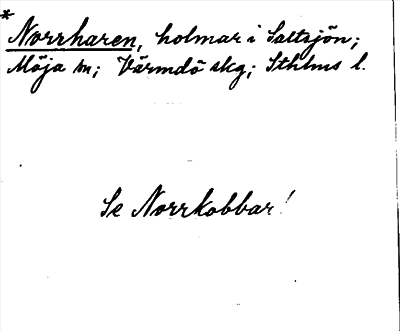 * Norrharen, holmar i Saltsjön;
Möja sn; Värmdö skg; Sthlms l.
Se Norrkobbar!